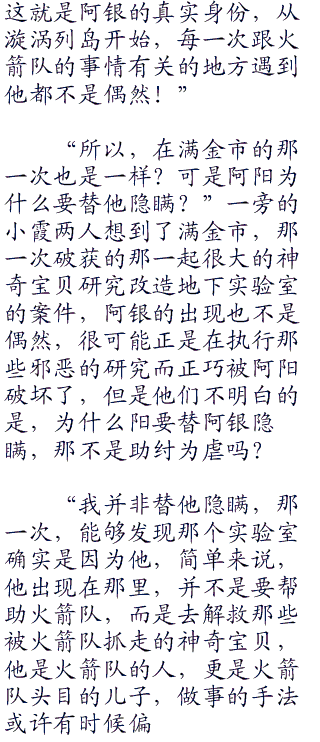 这就是阿银的真实身份，从
漩涡列岛开始，每一次跟火
箭队的事情有关的地方遇到
他都不是偶然！”
“所以，在满金市的那
一次也是一样？可是阿阳为
什么要替他隐瞒？”一旁的
小霞两人想到了满金市，那
一次破获的那一起很大的神
奇宝贝研究改造地下实验室
的案件，阿银的出现也不是
偶然，很可能正是在执行那
些邪恶的研究而正巧被阿阳
破坏了，但是他们不明白的
是，为什么阳要替阿银隐
瞒，那不是助纣为虐吗？
“我并非替他隐瞒，那
一次，能够发现那个实验室
确实是因为他，简单来说，
他出现在那里，并不是要帮
助火箭队，而是去解救那些
被火箭队抓走的神奇宝贝，
他是火箭队的人，更是火箭
队头目的儿子，做事的手法
或许有时候偏